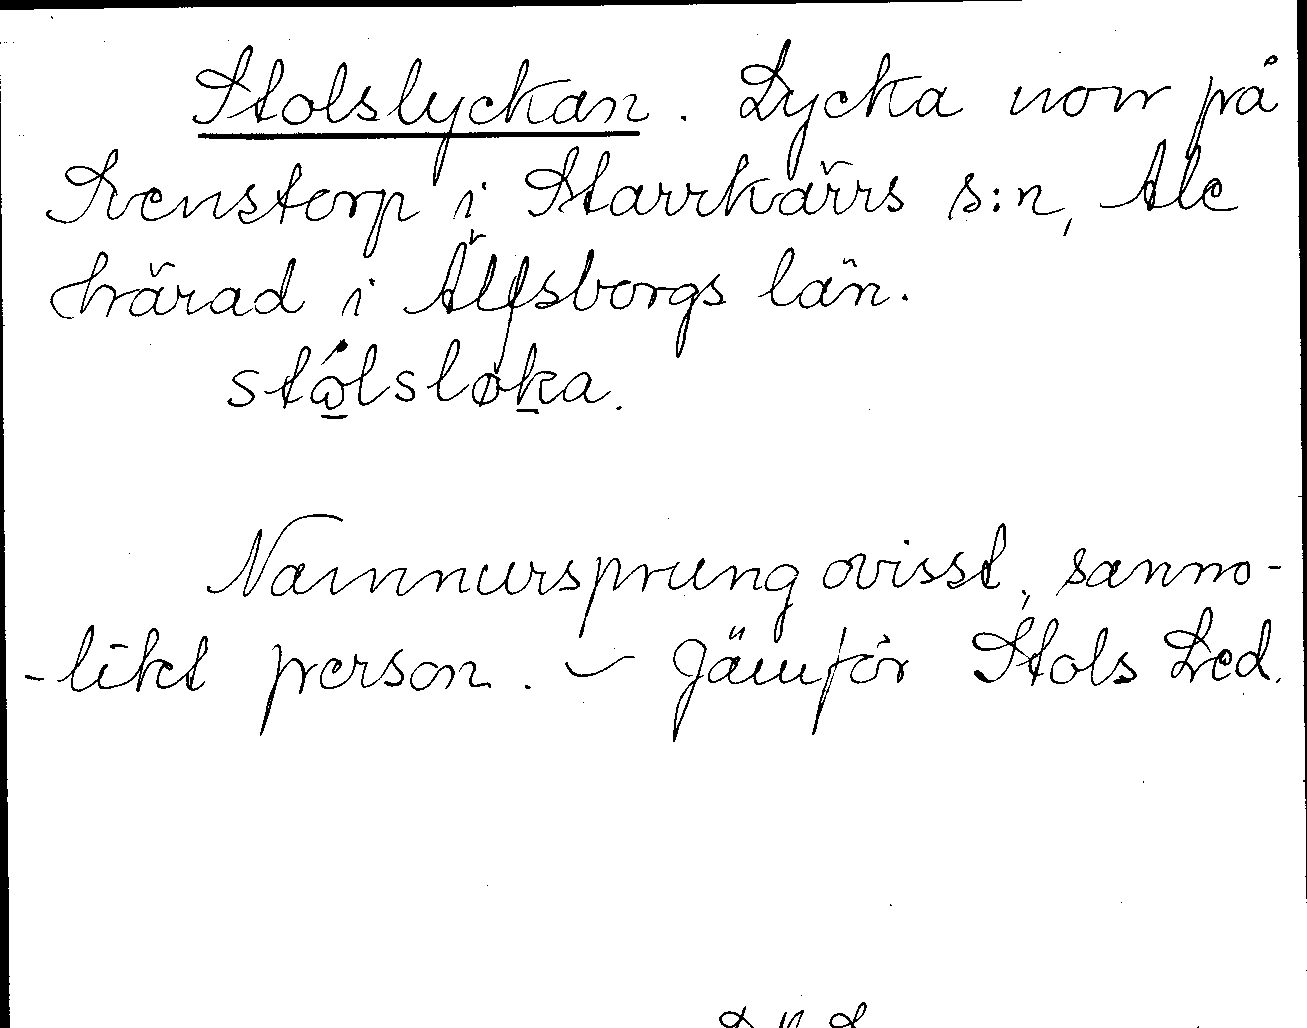 Stolslyckan. Lycka norr på
Svenstorp i Starrkärrs s:n, Ale
härad i Älfsborgs län.
stålsløka.
Namnursprung ovisst, sanno-
-likt person. – Jämför Stols Led.